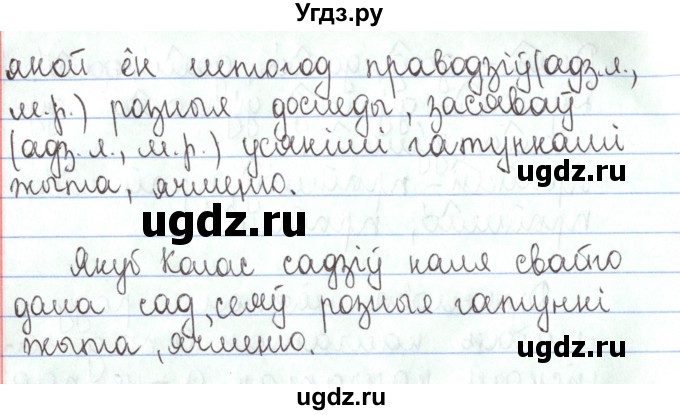 Угдз.ру
якой ён штогод праводзіў (адз.л.,
м.р.) розныя доследы, засяваў
(адз.л., м.р.) усякімі гатункамі
жыта, ячменю.
ugdz.ru
ugdz.ru
Якуб Колас садзіў каля свайго
дома сад, сеяў розныя гатункі
жыта, ячменю.
ugdz.ru
ugdz.ru
Угдз.ру